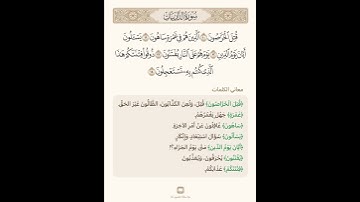 سورة الذاريات
قُتِلَ الْخَرَّاصُونَ ۝ الَّذِينَ هُمْ فِي غَمْرَةٍ سَاهُونَ ۝ يَسْأَلُونَ
أَيَّانَ يَوْمُ الدِّينِ ۝ يَوْمَ هُمْ عَلَى النَّارِ يُفْتَنُونَ ۝ ذُوقُوا فِتْنَتَكُمْ هَذَا
الَّذِي كُنْتُمْ بِهِ تَسْتَعْجِلُونَ ۝
معاني الكلمات
﴿قُتِلَ الْخَرَّاصُونَ﴾ قُتِلَ، وَلُعِنَ الكَذَّابُونَ، الظَّانُّونَ غَيْرَ الحَقِّ.
﴿غَمْرَةٍ﴾ جَهْلٍ يَغْمُرُهُمْ.
﴿سَاهُونَ﴾ غَافِلُونَ عَنْ أَمْرِ الآخِرَةِ.
﴿يَسْأَلُونَ﴾ سُؤَالَ اسْتِبْعَادٍ، وَإِنْكَارٍ.
﴿أَيَّانَ يَوْمُ الدِّينِ﴾ مَتَى يَوْمُ الجَزَاءِ؟!
﴿يُفْتَنُونَ﴾ يُحْرَقُونَ، وَيُعَذَّبُونَ.
﴿فِتْنَتَكُمْ﴾ عَذَابَكُمْ.